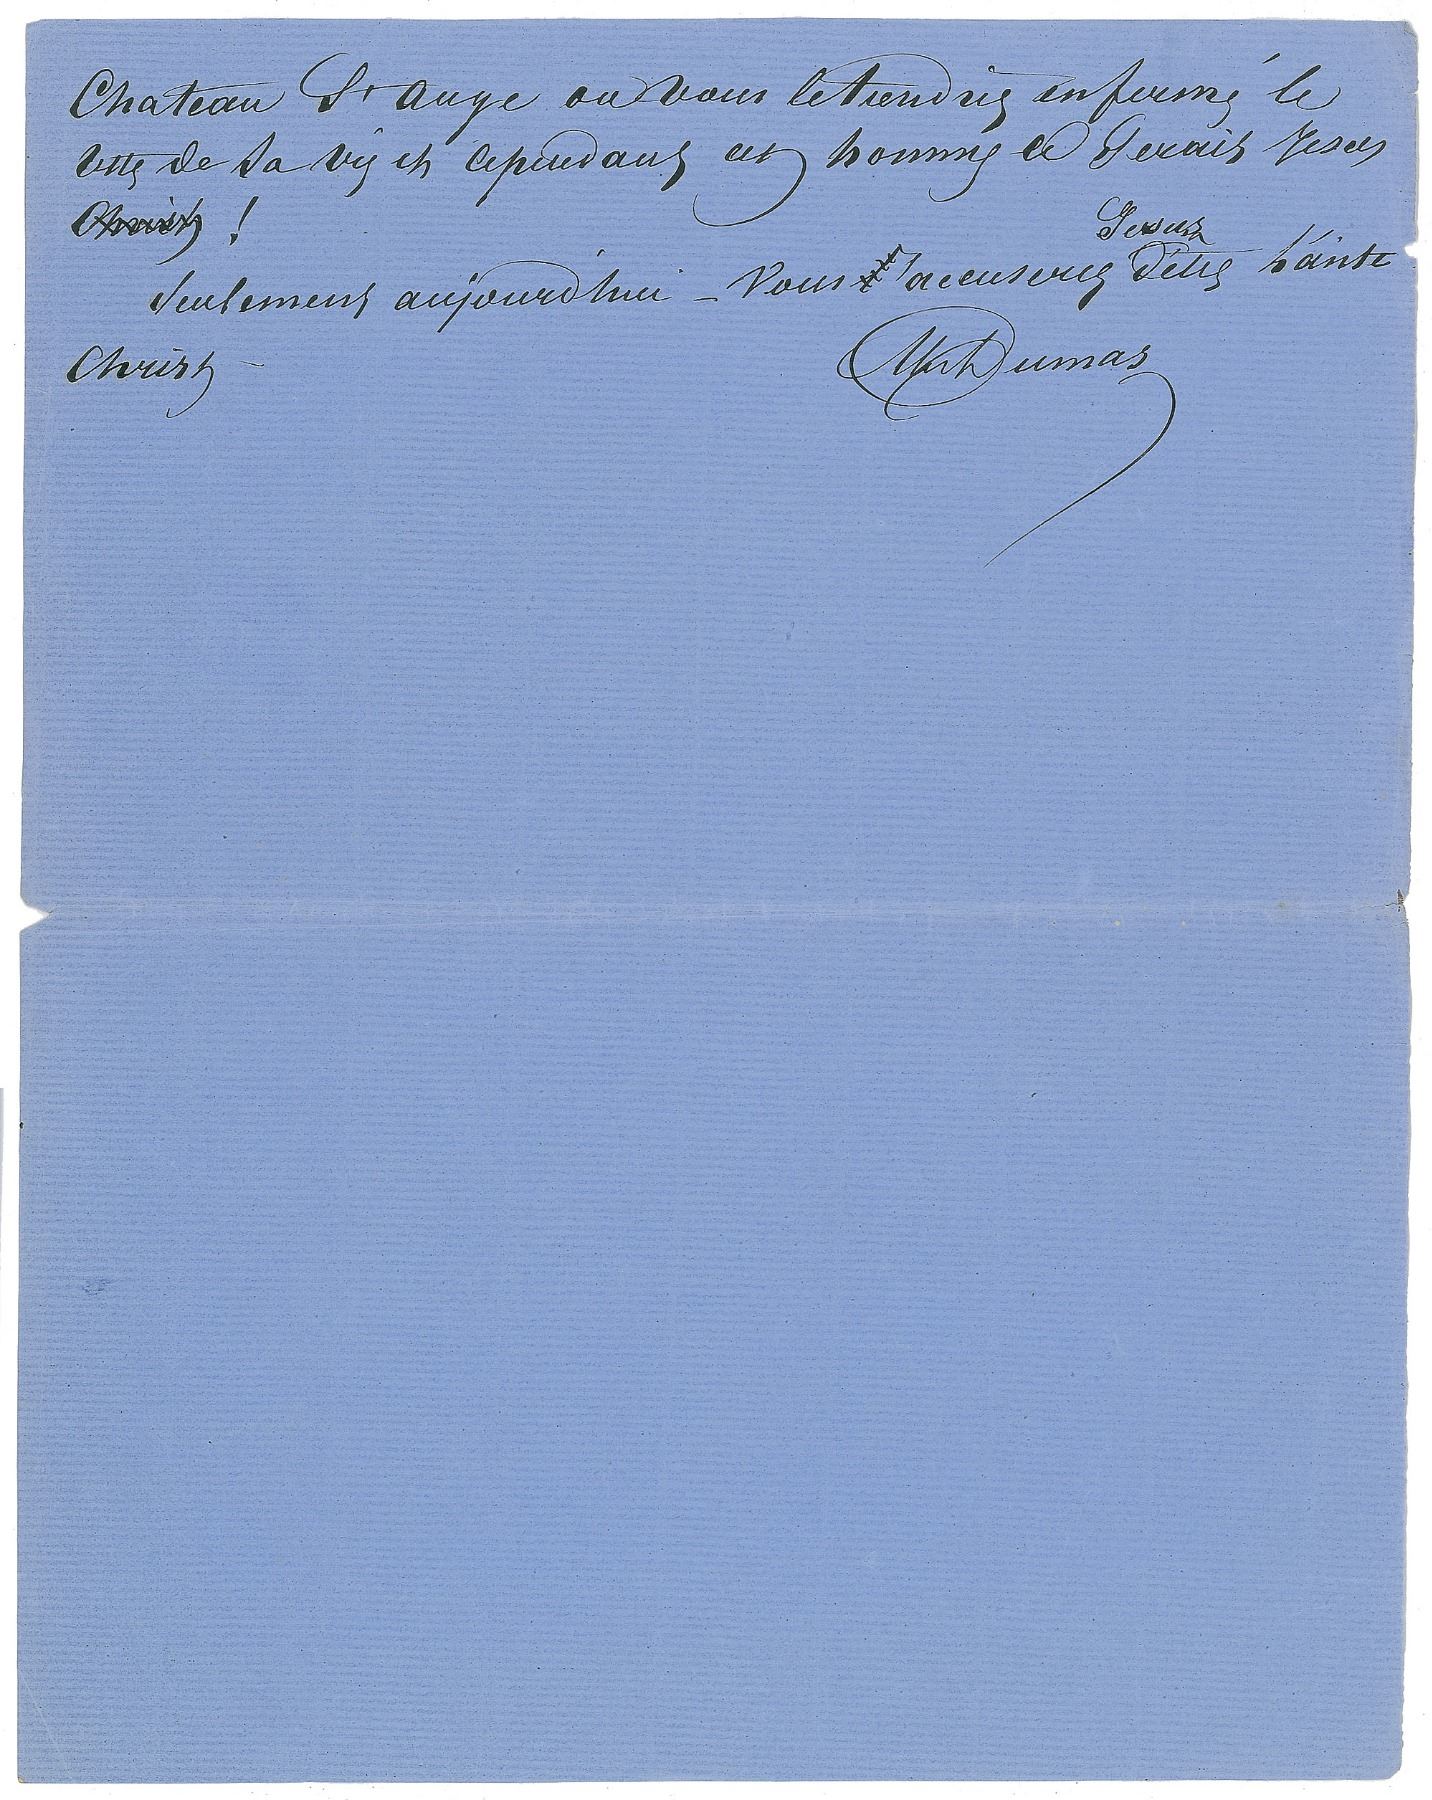 Chateau St Ange ou vous le tiendriez enfermé le
reste de sa vie et cependant cet homme ce serait Jesus
Christ !
Jesus
Seulement aujourd'hui – vous l'accuserez d'être l'ante
Christ –
Alex Dumas